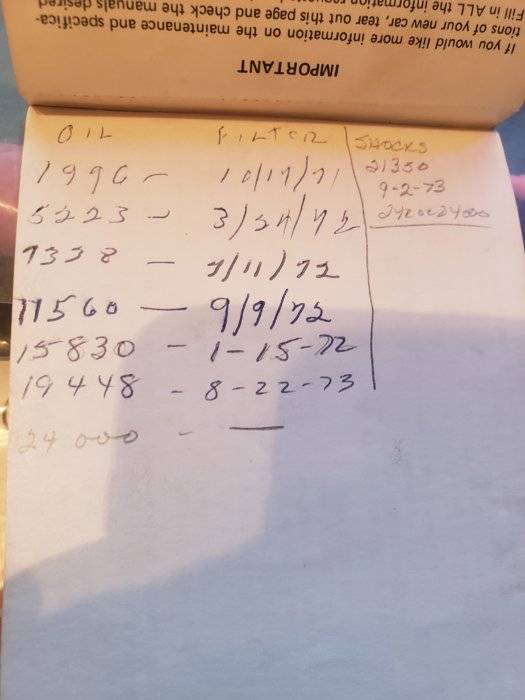 Fill in ALL the information
tions of your new car, tear out this page and check the manuals desired
If you would like more information on the maintenance and specifica-
IMPORTANT
OIL FILTER
1996 - 10/17/71
5223 - 3/24/72
7338 - 7/11/72
11560 - 9/9/72
15830 - 1-15-72
19448 - 8-22-73
24 000 -
SHOCKS
21350
9-2-73